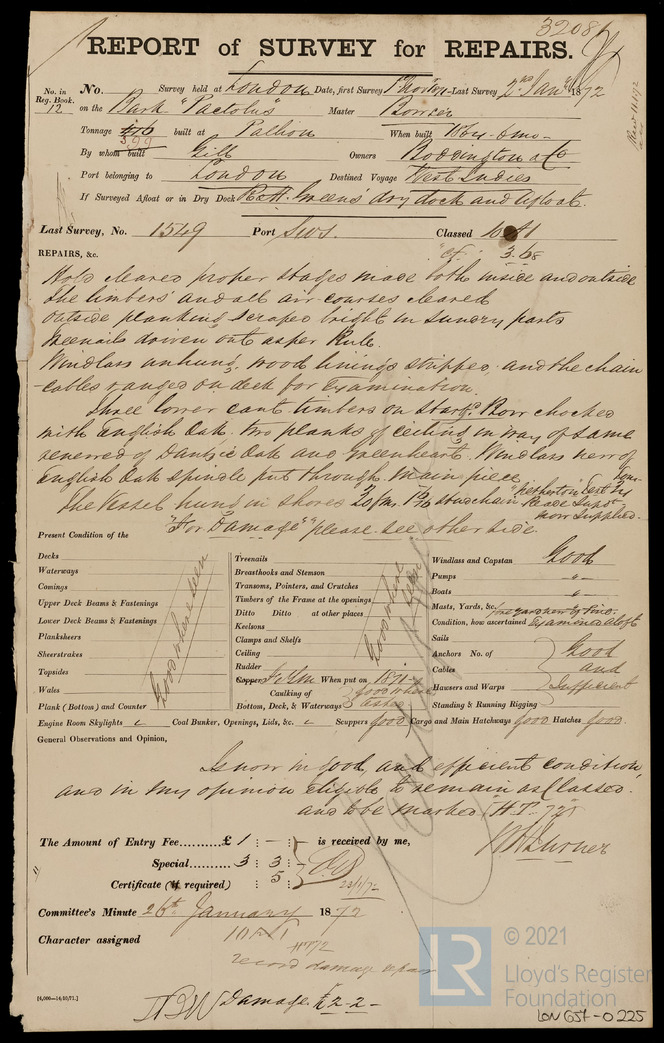 32081
REPORT of SURVEY for REPAIRS.
No. in Reg. Book. 12 No. Survey held at London Date, first Survey Last Survey 2nd Jany 1872
on the Bark "Pactolus" Master
Tonnage 399 built at Pallion When built
By whom built Gill Owners Boddington & Co
Port belonging to London Destined Voyage West Indies
If Surveyed Afloat or in Dry Dock R & H. Green's dry dock and afloat.
Last Survey, No. 1549 Port Classed 10 A1
REPAIRS, &c. 3.68
Hold cleared proper stages made both inside and outside
the limbers and all air courses cleared
outside planking scraped bright in sundry parts
treenails driven out as per Rule.
Windlass unhung, wood linings stripped, and the chain
cables ranged on deck for Examination.
Three lower cant timbers on Starbd. Bow chocked
with English Oak. two planks of ceiling in way of same
renewed of Dantzic Oak and Greenheart. Windlass new of
English Oak spindle put through main piece
The Vessel hung in shores
now supplied.
"For Damage" please see other side.
Present Condition of the
Decks
Waterways
Comings
Upper Deck Beams & Fastenings
Lower Deck Beams & Fastenings
Planksheers
Sheerstrakes
Topsides
Wales
Plank (Bottom) and Counter
Good where seen
Treenails
Breasthooks and Stemson
Transoms, Pointers, and Crutches
Timbers of the Frame at the openings
Ditto Ditto at other places
Keelsons
Clamps and Shelfs
Ceiling
Rudder
Good where seen
Copper When put on 1871
Caulking of Bottom, Deck, & Waterways good where
Windlass and Capstan Good
Pumps "
Boats "
Masts, Yards, &c.
Condition, how ascertained Examined aloft
Sails
Anchors No. of
Cables
Hawsers and Warps
Standing & Running Rigging
Good and Sufficient
Engine Room Skylights Coal Bunker, Openings, Lids, &c. Scuppers good Cargo and Main Hatchways good Hatches good.
General Observations and Opinion,
Is now in good, and efficient condition
and in my opinion eligible to remain as Classed.
and to be marked "H T. 72"
The Amount of Entry Fee £ 1 : — : is received by me,
Special 3 : 3 :
Certificate (if required) : 5 :
23/1/72
Committee's Minute 26th January 1872
Character assigned 10 A1
HT72
record damage repair
[4,000—14/10/71.]
Damage £2-2-
LR © 2021
Lloyd's Register
Foundation
LON 651-0225